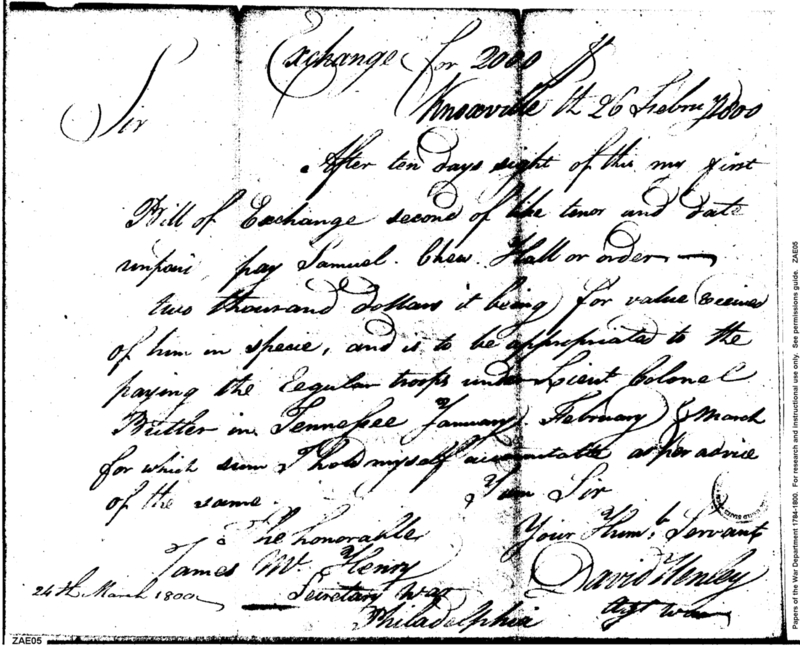 Exchange for 2000 $
Knoxville th 26 Febru 1800
Sir
After ten days sight of this my first
Bill of Exchange second of like tenor and date
unpaid, pay Samuel Chew Hall or order
two thousand dollars it being for value received
of him in specie, and is to be appropriated to the
paying the Regular troops under Lieut Colonel
Butler in Tennessee January February & March
for which sum I hold myself accountable as per advice
of the same.
I am Sir
Your Humb. Servant
David Henley
Agt War
The honorable
James Mc. Henry
Secretary War
Philadelphia
24th March 1800
ZAE05
Papers of the War Department 1784-1800. For research and instructional use only. See permissions guide. ZAE05